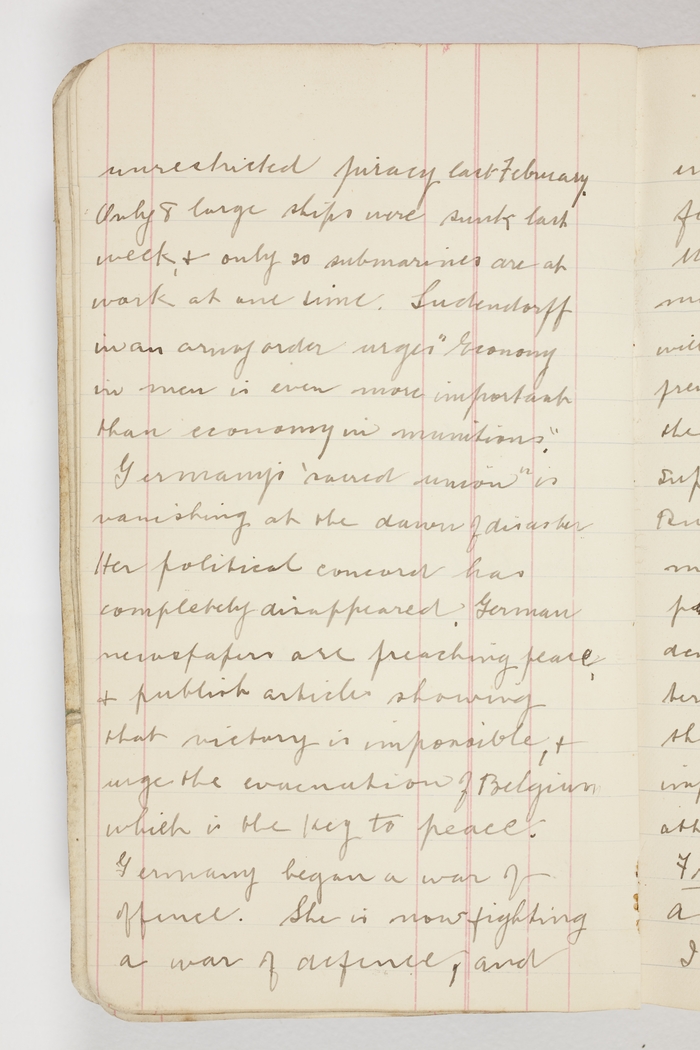 unrestricted piracy last February.
Only 8 large ships were sunk last
week, & only 20 submarines are at
work at one time. Ludendorff
in an army order urges "Economy
in men is even more important
than economy in munitions".
Germany's "sacred union" is
vanishing at the dawn of disaster
Her political concord has
completely disappeared. German
newspapers are preaching peace,
& publish articles showing
that victory is impossible, &
urge the evacuation of Belgium
which is the key to peace.
Germany began a war of
offence. She is now fighting
a war of defence, and